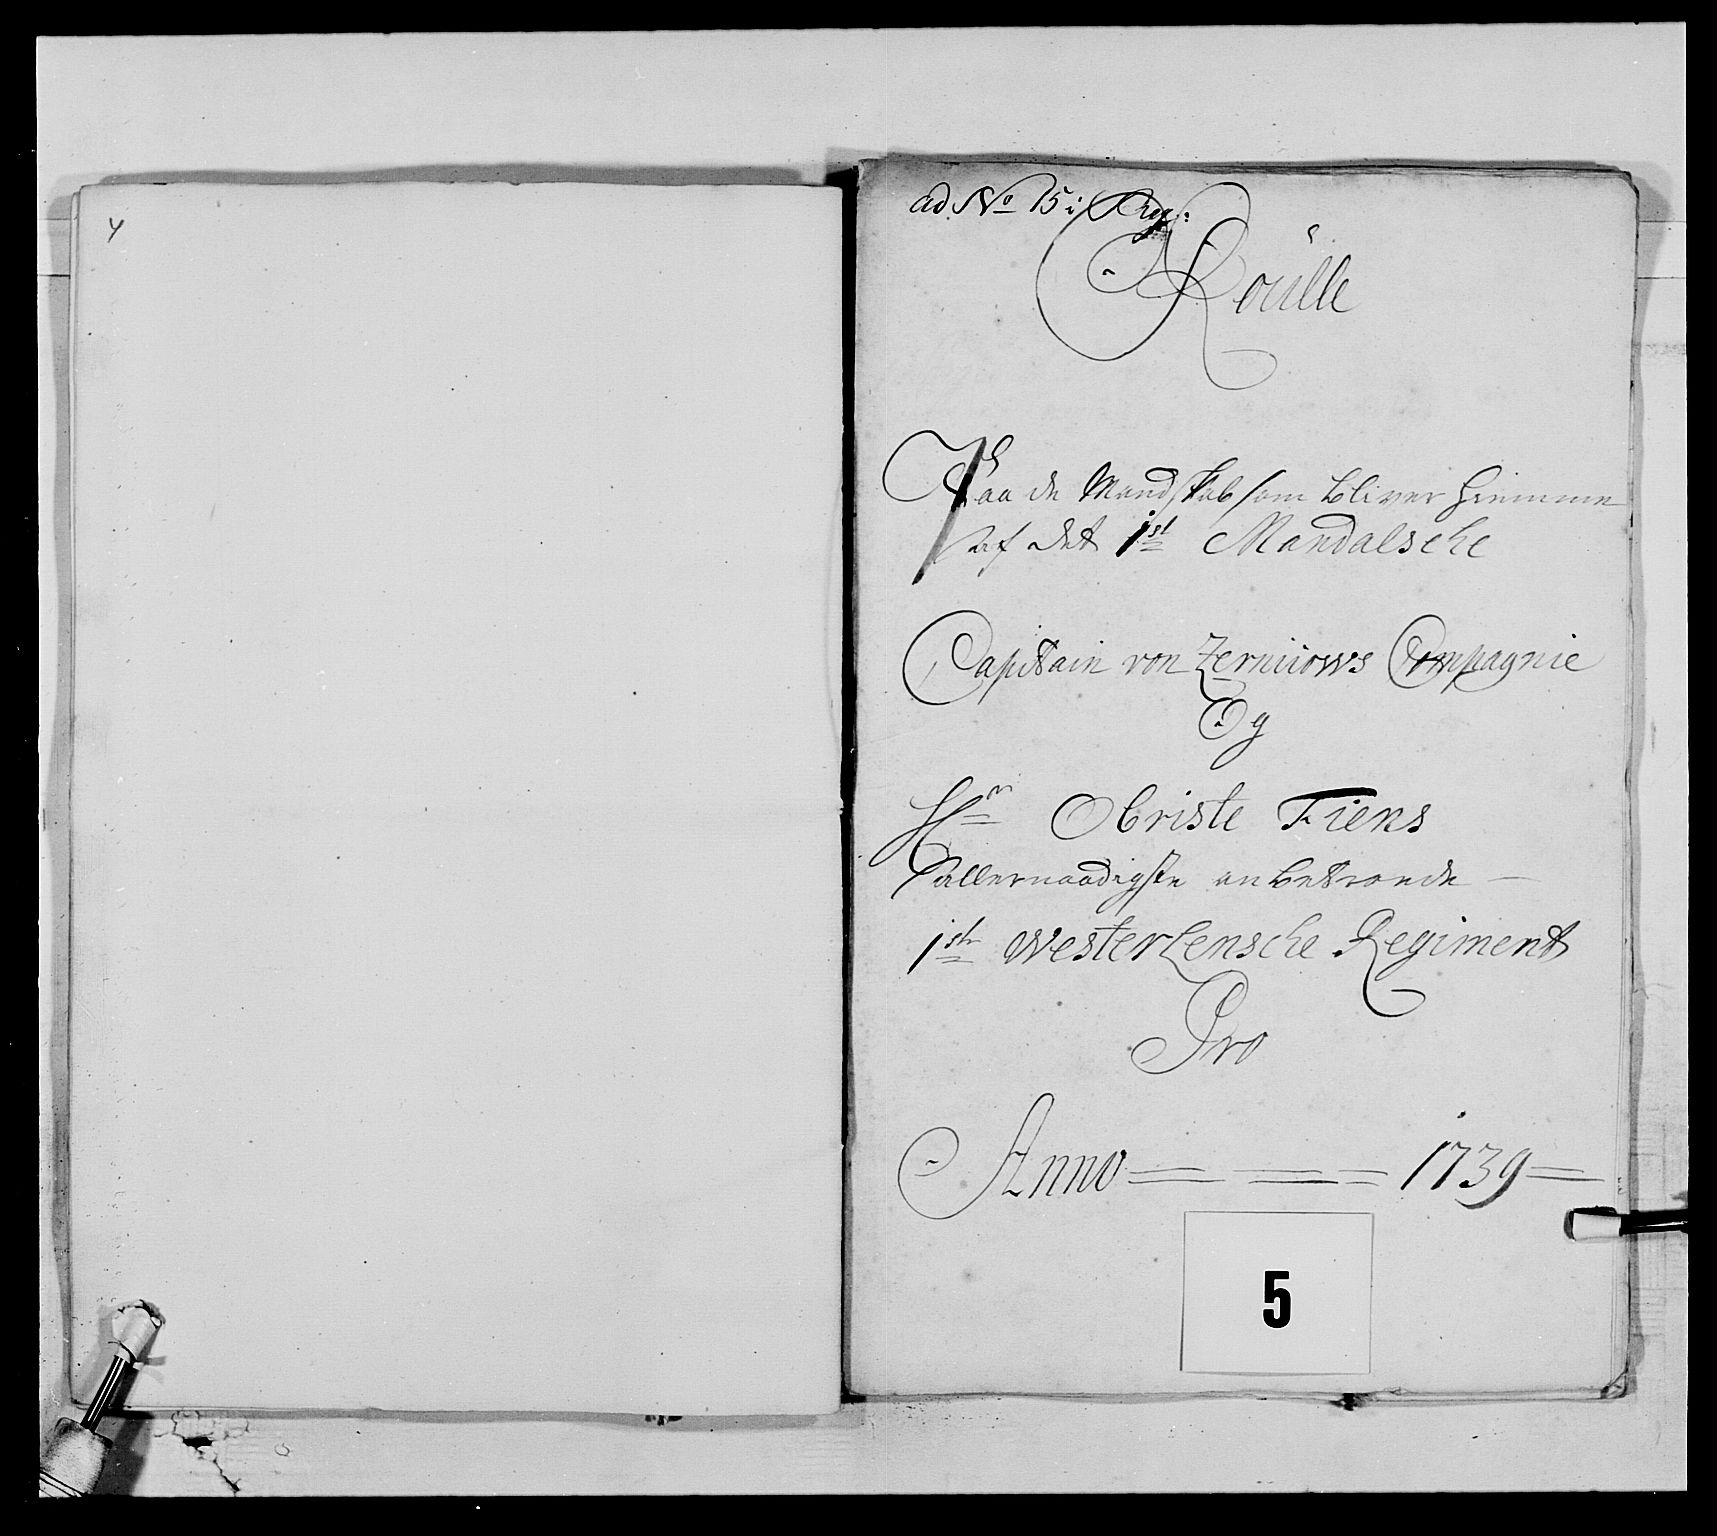 4
ad No 15 i Reg:
Roülle
Paa de Mandskab som bliver hiemme
af det 1st Mandalsche
Capitain von Zerniiows Compagnie
Og
Hr Obriste Fiens
allernaadigste anbetroede
1ste Westerlensche Regiment
Pro
Anno 1739
5